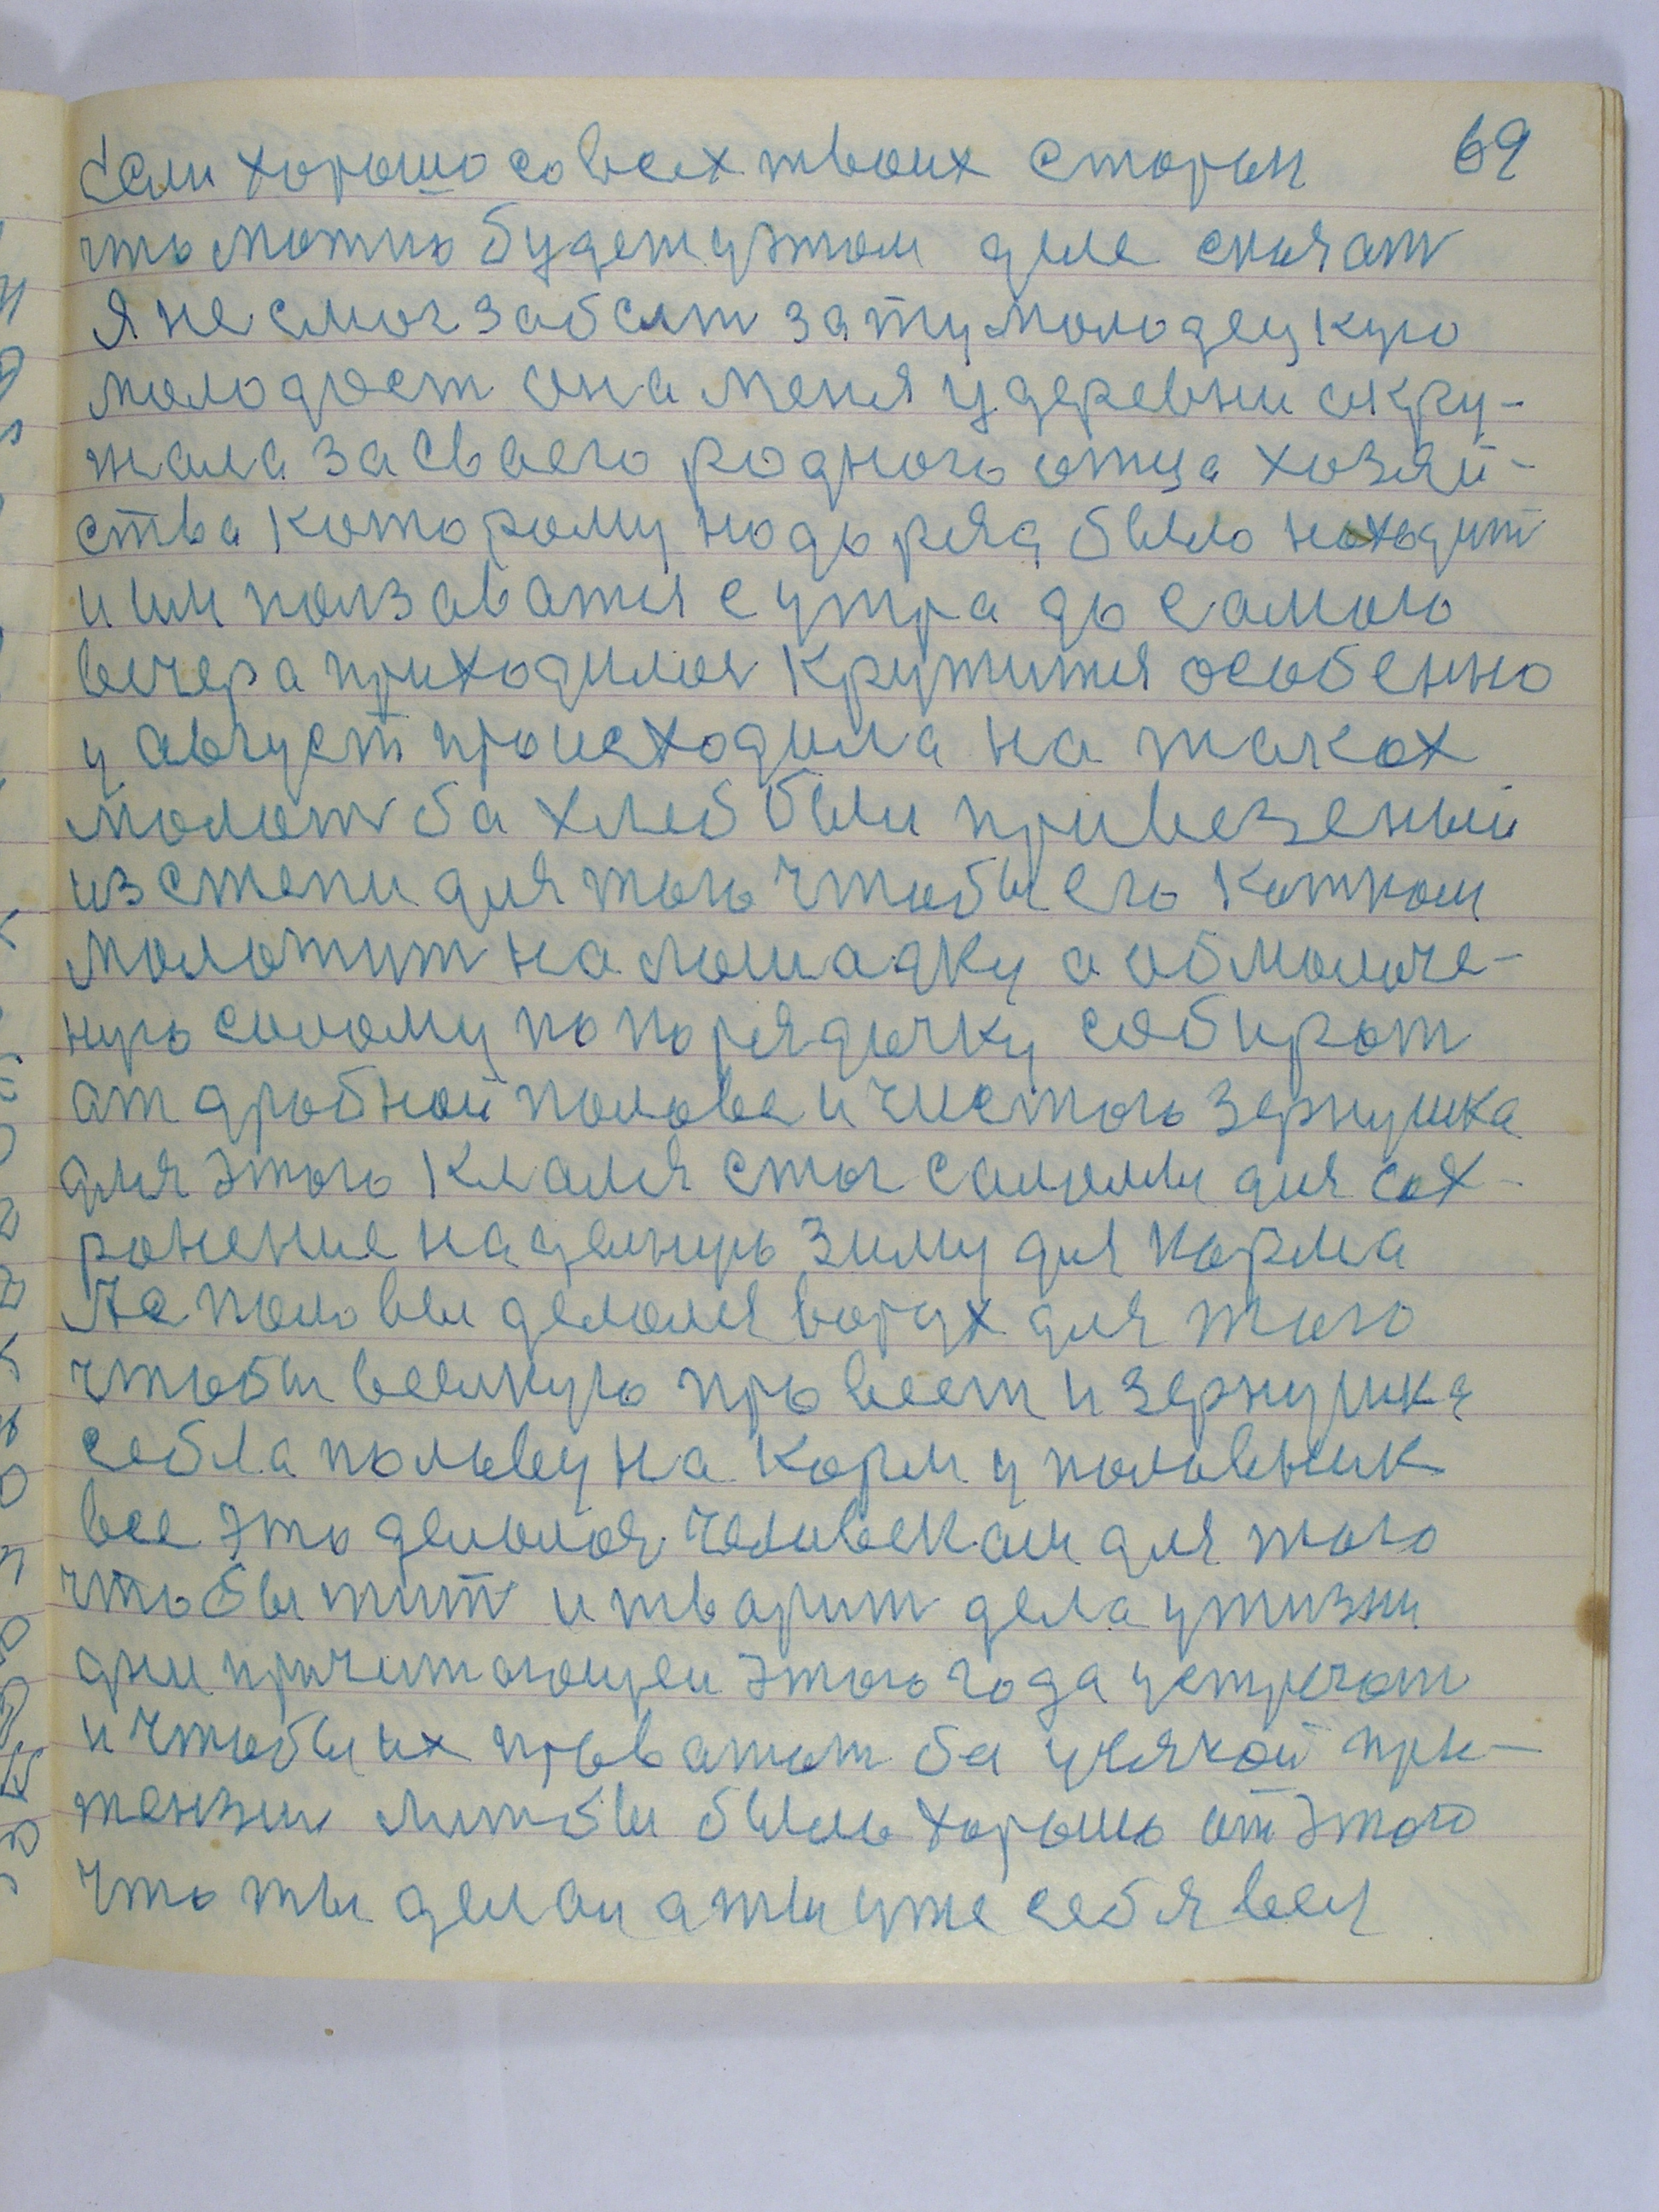 69
Если хорошо со всех твоих сторон
что можно будет у этом деле сказат
Я не смог забыт за ту молодецкую
молодост она меня у деревни окру-
жала за своего родного отца хозяй-
ства которому подоряд было находит
и им ползаватся с утра до самого
вечера приходилося кружится особенно
у август происходила на токох
молотба хлеб был привезеный
из степи для того чтобы его котком
молотит на лошадку а обмолоче-
ную солому по порядочку собират
от дробной половы и чистого зернушка
для этого клался стог соломы для сох-
ронение на целную зиму для корма
А с половы делался ворох для того
чтобы веялкую провеет и зернушка
собла полову на корм у половник
все это делалося человеком для того
чтобы жит и творит дела у жизни
дни причитающеи этого года устречат
и чтобы их проважат без усякой при-
тензии лижбы было хорошо от этого
что ты делаи а ты уже себя вел